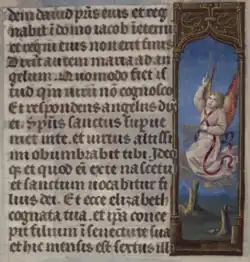 dem dauid pr̃is eius et reg
nabit in domo iacob in eternũ
et regni eius non erit finis
Dixit autem maria ad an
gelum Quomodo fiet is
tud qm̃ virũ nõ cognosco
Et respondens angelus dix
ei Sp̃us sanctus supue
niet in te et virtus altissi
mi obumbrabit tibi Ideo
qz et quod ex te nascetur
et sanctum vocabitur fi
lius dei Et ecce elizabeth
cognata tua et ip̃a conce
pit filium in senectute sua
et hic mensis est sextus illi